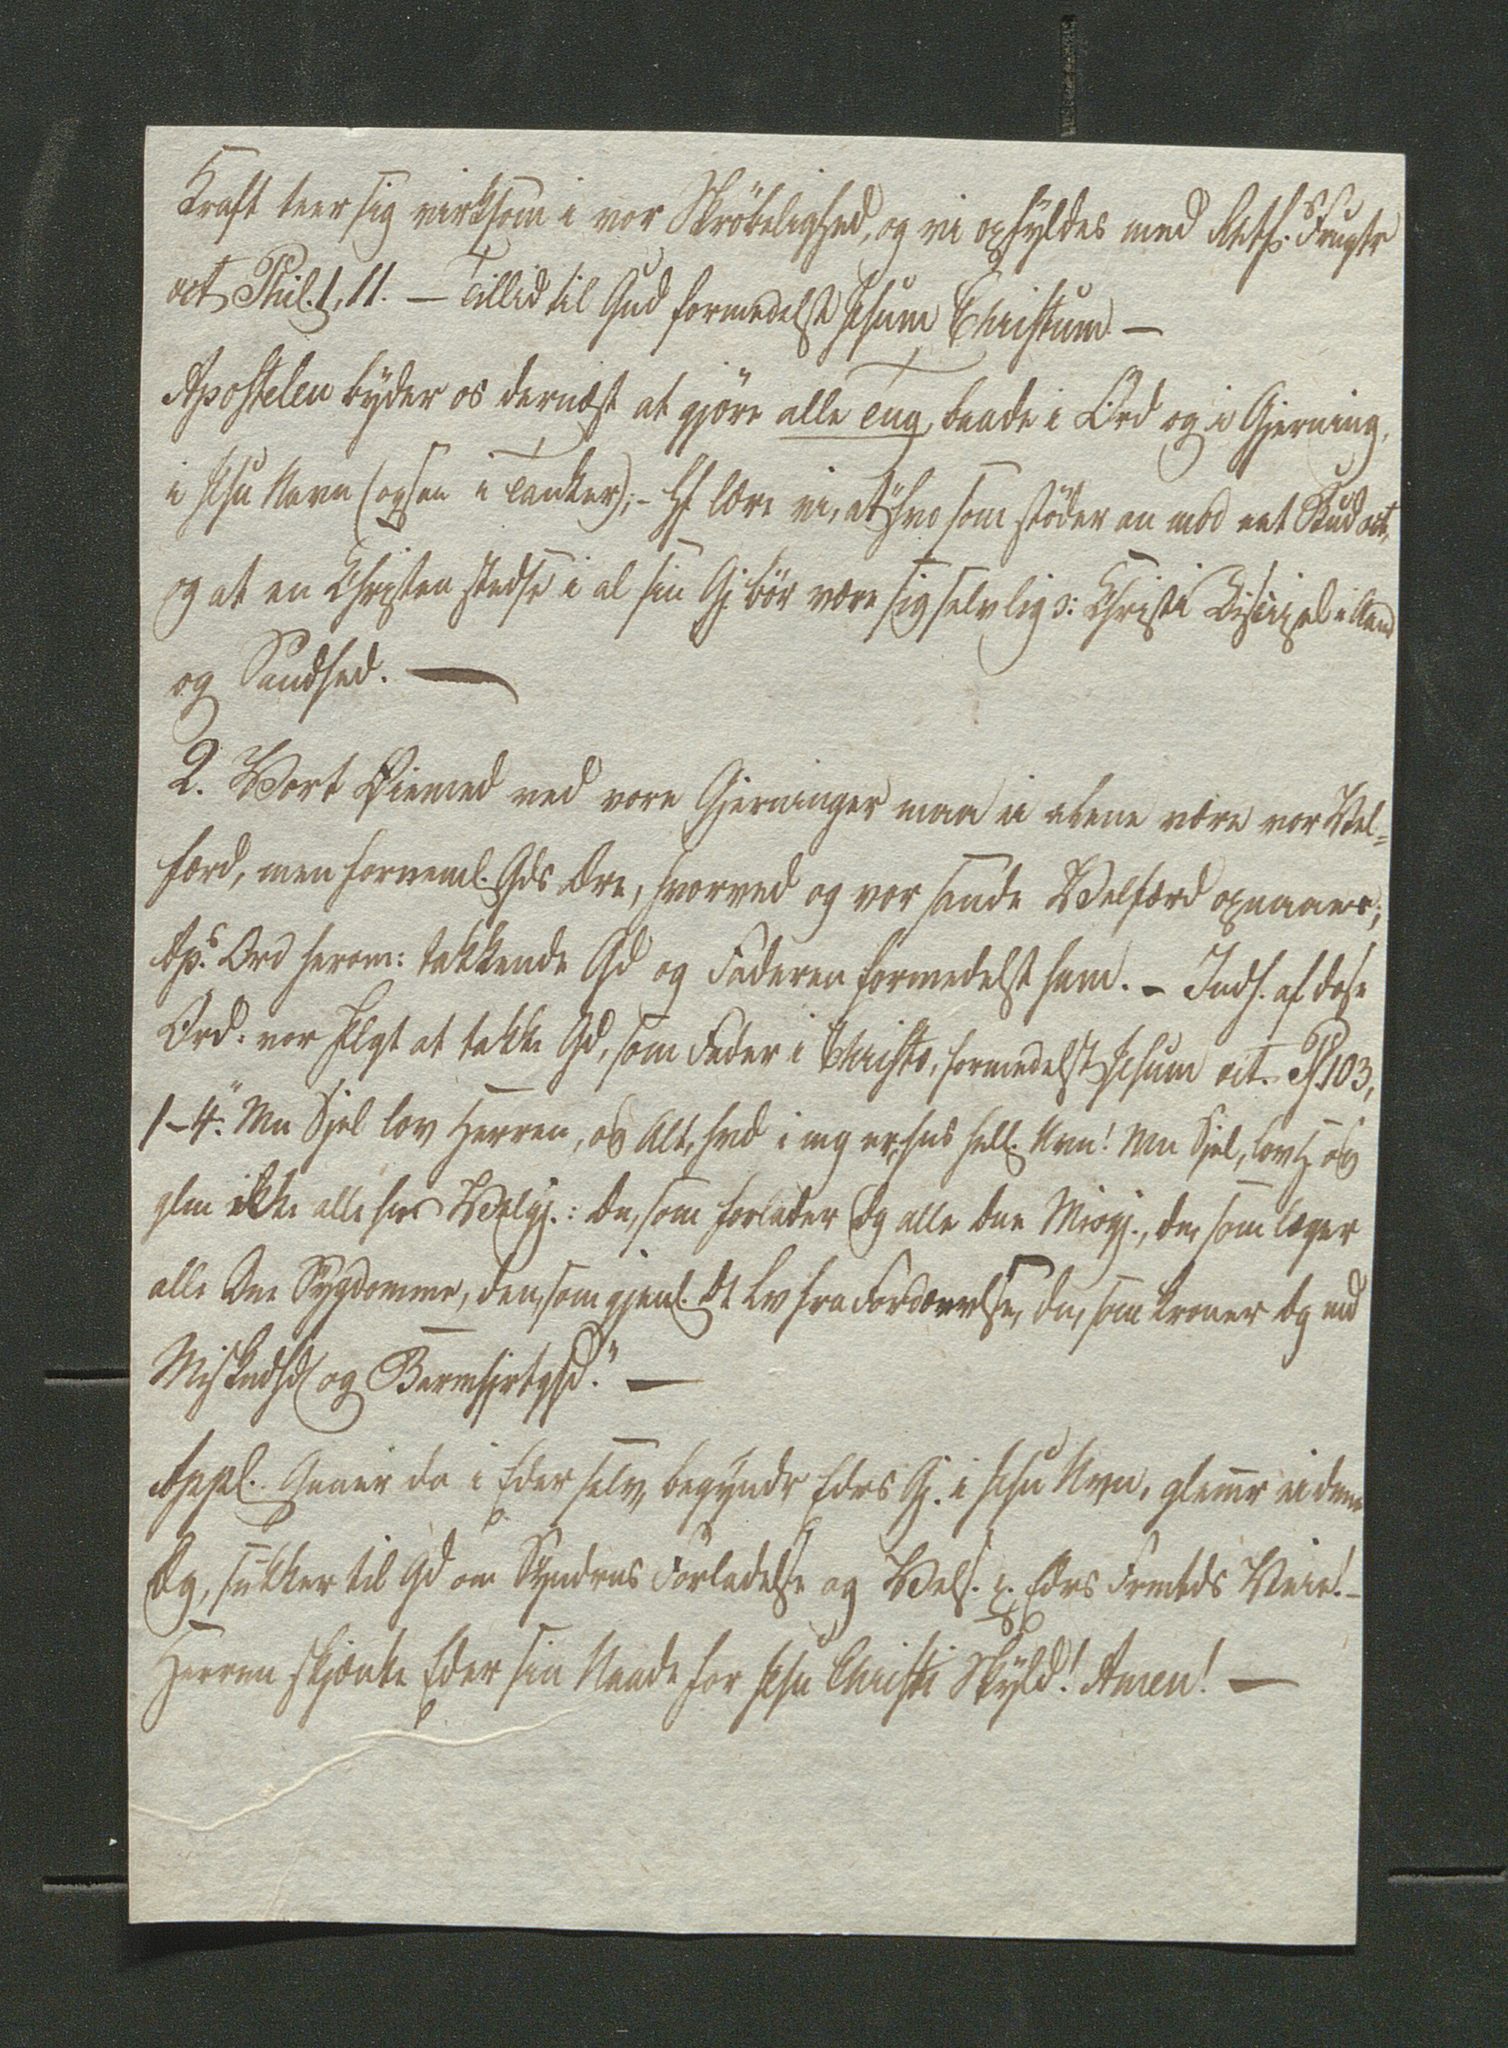 Kraft teer sig virksom i vor Skröbelighed, og vi opfyldes med Retf.s Frugtr
oct Phil. 1, 11. — Tillid til Gud formedelst Jesum Christum —
Apostelen byder os dernæst at gjöre alle Ting, baade i Ord og i Gjerning,
i Jesu Navn (ogsaa i Tanker); - Hf lære vi, at hvo som stöder an mod eet Bud oct,
og at en Christen stedse i al sin Gj. bör være sig selv lig ɔ: Christi Discipel i Aand
og Sandhed. —
2. Vort Øiemed ved vore Gjerninger maa ei alene være vor Vel-
færd, men forneml. Gds Ære, hvorved og vor sande Velfærd opnaaes;
Ap.s Ord herom: takkende Gd og Faderen formedelst ham. - Indh. af disse
Ord. vor Plgt at takke Gd, som Fader i Christo, formedelst Jesum oct. Ps. 103,
1-4. "Mn Sjel lov Herren, og Alt, hvd i mg er, hns hell. Nvn! Mn Sjel, lov H. og
glm ikke alle hns Velgj.: dn, som forlader dg alle dne Misgj., dn, som læger
alle dne Sygdomme, den, som gjenl. dt Lv fra Fordærvelse, dn, som kroner dg md
Miskndhd og Barmhjrtghd." —
Appl. Gaaer da i Eder selv, begyndr Edrs Gj. i Jesu Nvn, glemr ei dnne
Dg, sukker til Gd om Syndrns Forladelse og Vels. p. Edrs Frmtds Veie! -
Herren skjænke Eder sin Naade for Jesu Christi Skyld! Amen! —